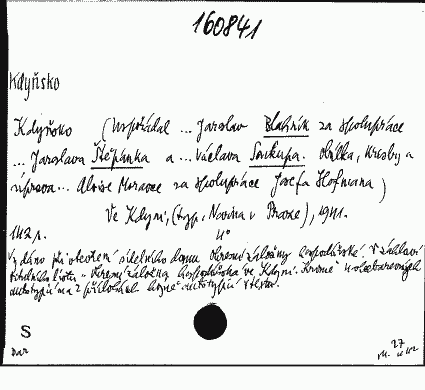 160841
Kdyňsko
Kdyňsko (Uspořádal ... Jaroslav Blahník za spolupráce
... Jaroslava Štěpánka a ... Václava Soukupa. Obálka, kresby a
úprava ... Aloise Moravce za spolupráce Josefa Hofmana)
Ve Kdyni, (typ. Novina v Praze), 1941.
142 s. 4°
Vydáno při otevření sídelního domu Okresní záložny hospodářské. V záhlaví
titulního listu: Okresní záložna hospodářská ve Kdyni. Kromě
autotypií na 2 přílohách autotypií v textu.
S
Dar
27